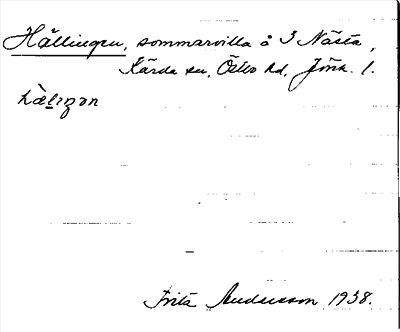 Hällingen, sommarvilla å 3 Nästa,
Kärda sn, Östbo hd, Jönk. l.
Fritz Andersson 1938.